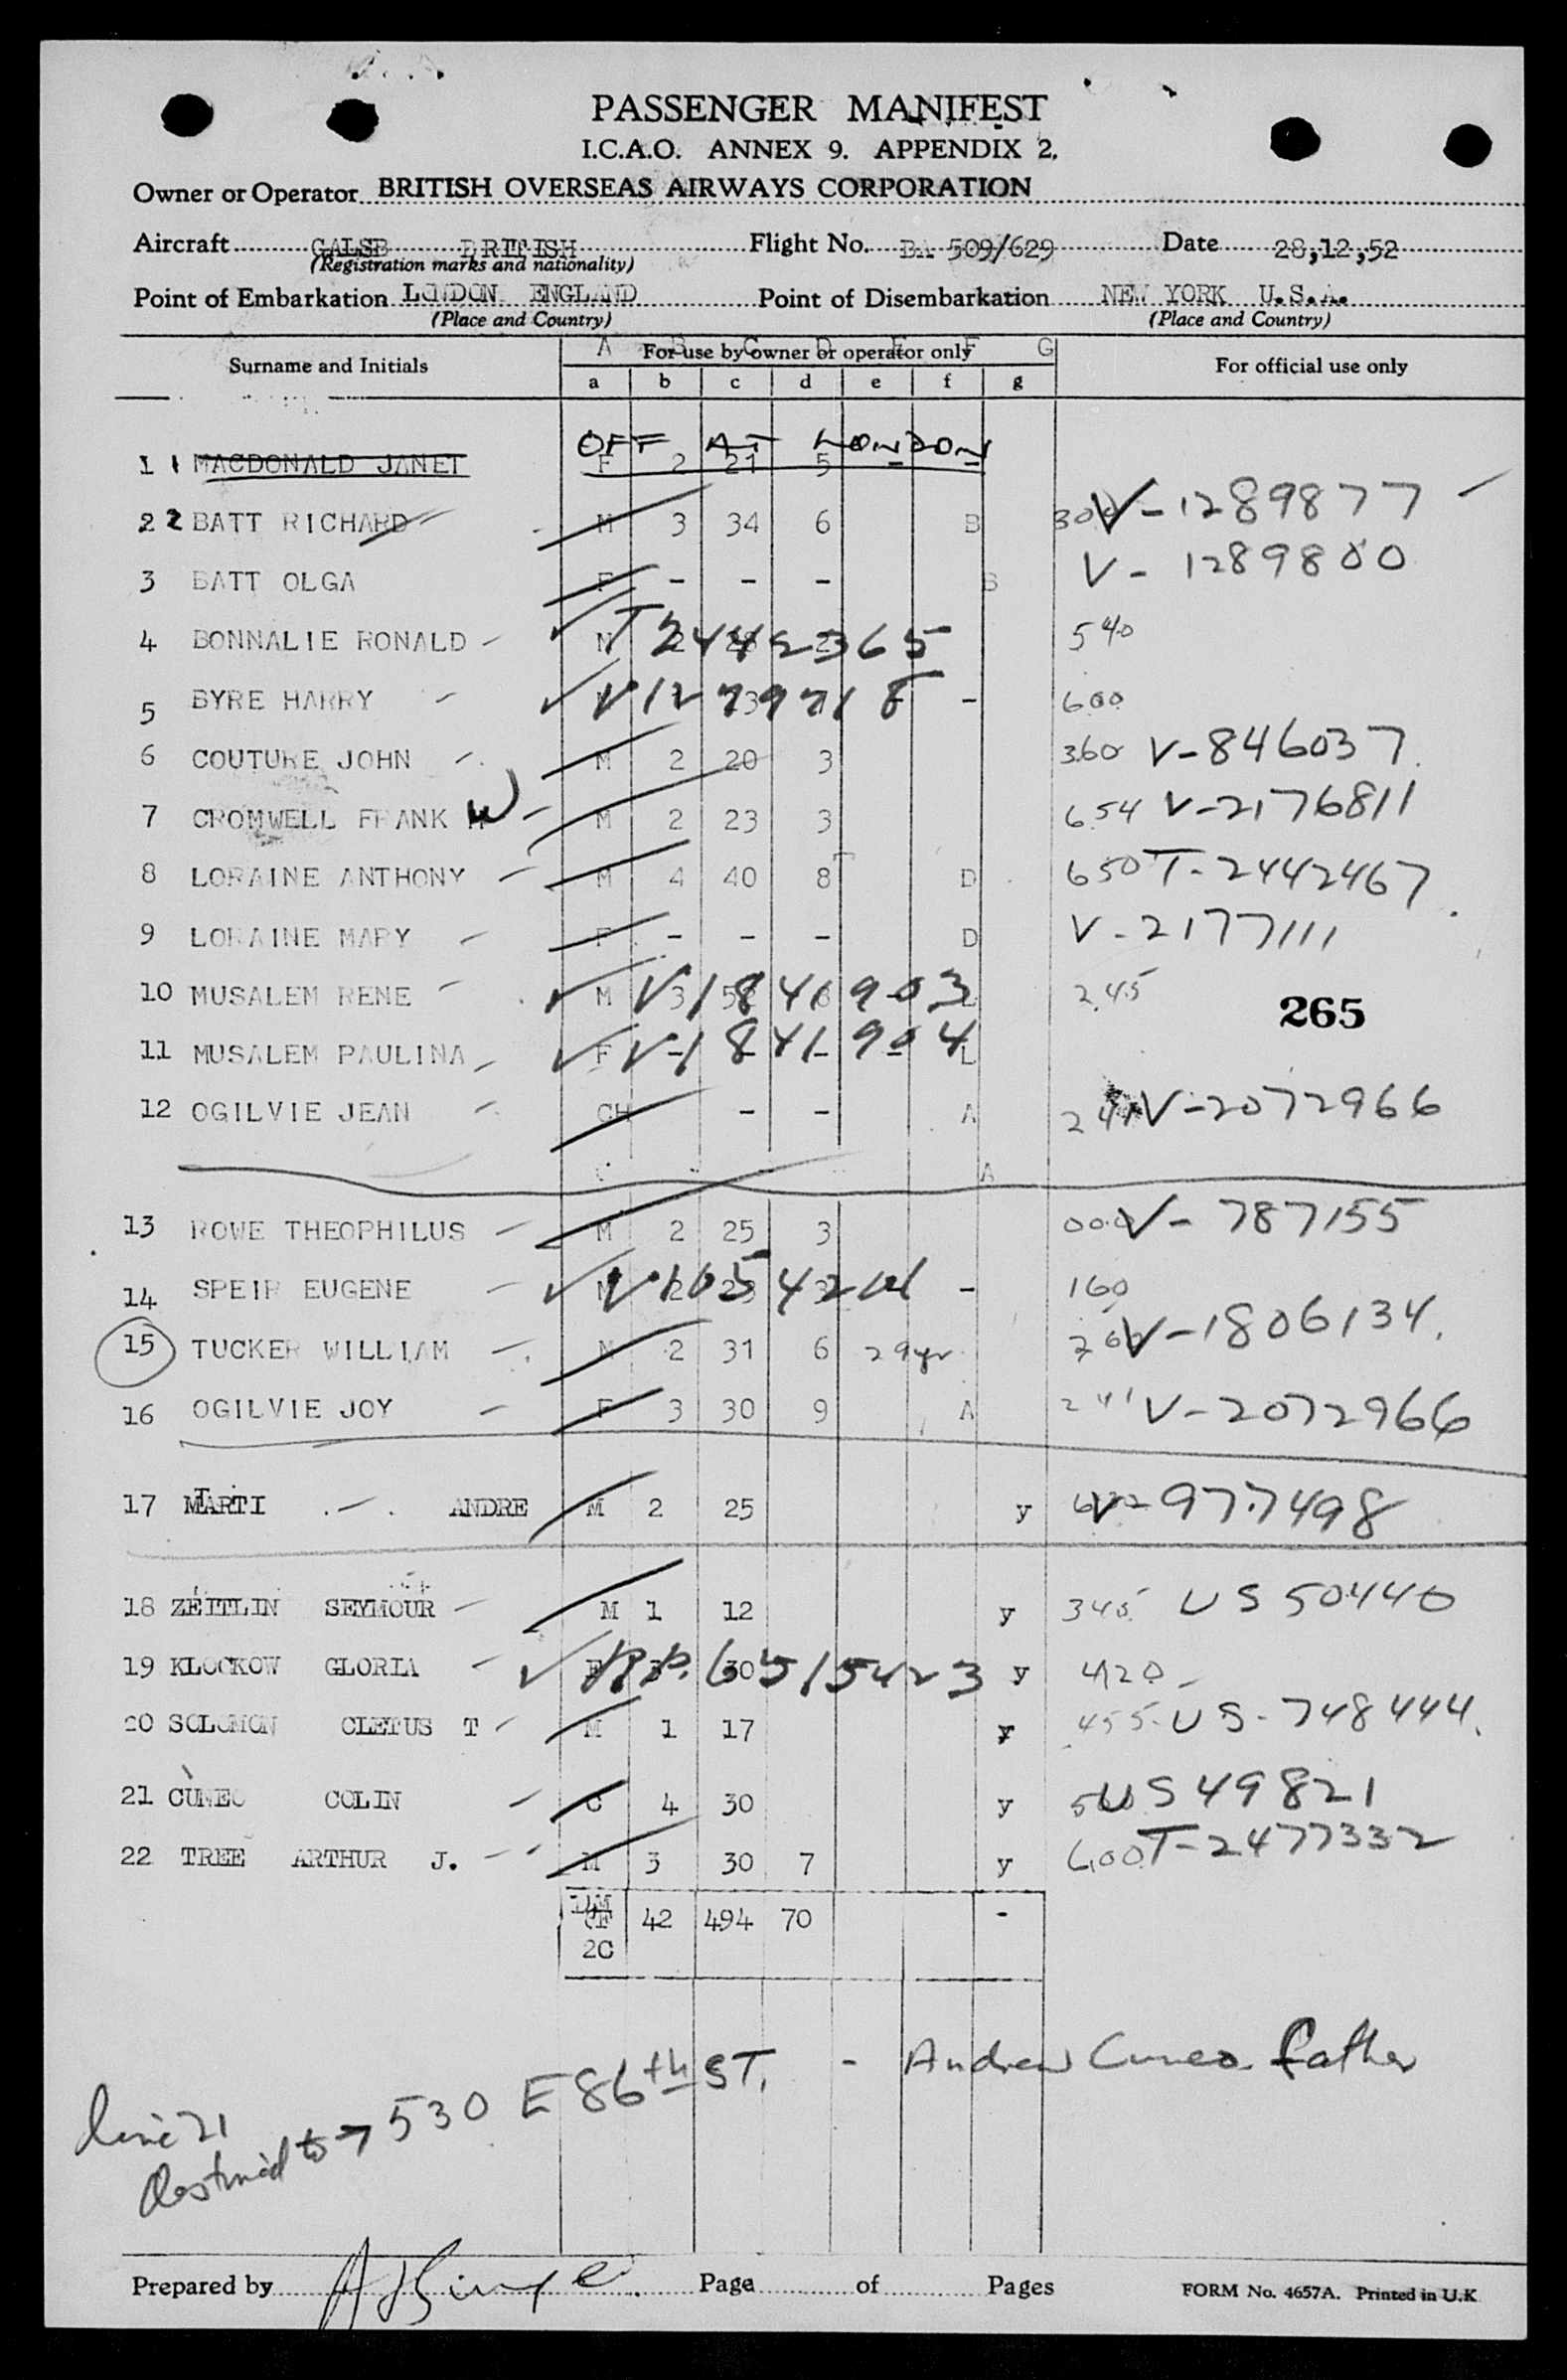 PASSENGER MANIFEST
I.C.A.O. ANNEX 9. APPENDIX 2.
Owner or Operator BRITISH OVERSEAS AIRWAYS CORPORATION
Aircraft GALSE BRITISH Flight No. BA 509/629 Date 28,12,52
(Registration marks and nationality)
Point of Embarkation LONDON ENGLAND Point of Disembarkation NEW YORK U.S.A.
(Place and Country) (Place and Country)
A B C D E F G
Surname and Initials For use by owner or operator only For official use only
a b c d e f g
OFF AT LONDON
1 1 MACDONALD JANET F 2 21 5
2 2 BATT RICHARD M 3 34 6 B 300 V-1289877
3 BATT OLGA F - - - B V-1289800
4 BONNALIE RONALD M T2442365 540
5 BYRE HARRY V1279718 - 600
6 COUTURE JOHN M 2 20 3 360 V-846037
7 CROMWELL FRANK W M 2 23 3 654 V-2176811
8 LORAINE ANTHONY M 4 40 8 D 650 T-2442467
9 LORAINE MARY F - - - D V-2177111
10 MUSALEM RENE M V1841903 L 245
265
11 MUSALEM PAULINA F V-1841904 L
12 OGILVIE JEAN CH - - A 241 V-2072966
A
13 ROWE THEOPHILUS M 2 25 3 000 V-787155
14 SPEIR EUGENE M - 160
15 TUCKER WILLIAM M 2 31 6 29yr 260 V-1806134
16 OGILVIE JOY F 3 30 9 A 241 V-2072966
17 MARTI ANDRE M 2 25 y V-977498
18 ZEITLIN SEYMOUR M 1 12 y 345 US 50440
19 KLOCKOW GLORIA F P.P. 6515423 y 420
20 SOLOMON CLETUS T M 1 17 y 455 US-748444
21 CUNEO COLIN C 4 30 y US 49821
22 TREE ARTHUR J. M 3 30 7 y 600 T-2477332
14M 42 494 70 -
6F
2C
line 21
Destined to → 530 E 86th ST. - Andrew Cuneo father
Prepared by Page of Pages FORM No. 4657A. Printed in U.K